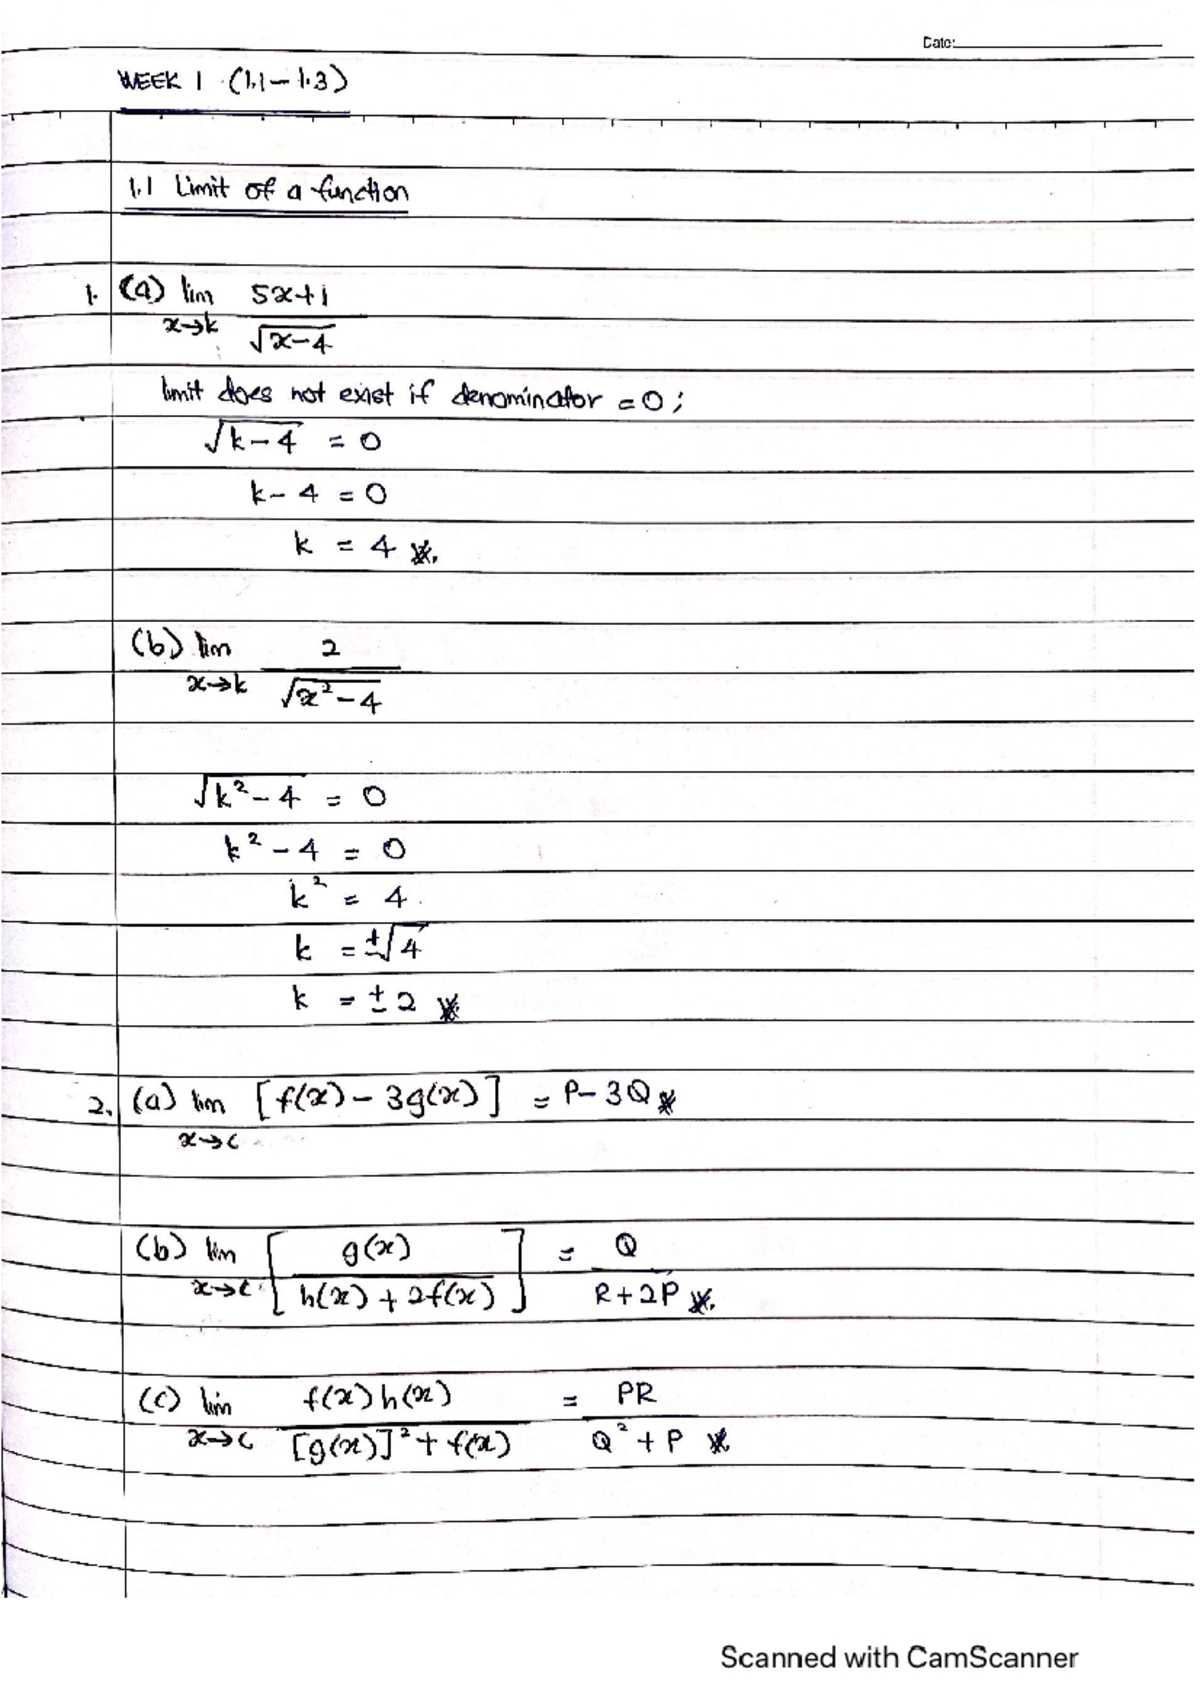 Date:
WEEK 1 (1.1 – 1.3)
1.1 Limit of a function
1. (a) lim x→k 5x+1 / √(x-4)
limit does not exist if denominator = 0 ;
√(k-4) = 0
k - 4 = 0
k = 4
(b) lim x→k 2 / √(x²-4)
√(k²-4) = 0
k² - 4 = 0
k² = 4
k = ±√4
k = ±2
2. (a) lim x→c [f(x) - 3g(x)] = P - 3Q
(b) lim x→c [g(x) / h(x) + 2f(x)] = Q / R+2P
(c) lim x→c f(x)h(x) / [g(x)]² + f(x) = PR / Q² + P
Scanned with CamScanner